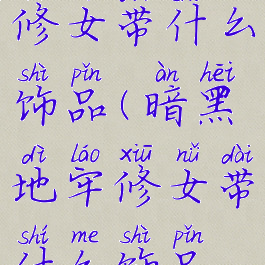 修女带什么
shì pǐn àn hēi
饰品(暗黑
dì láo xiū nǚ dài
地牢修女带
shí me shì pǐn
什么饰品